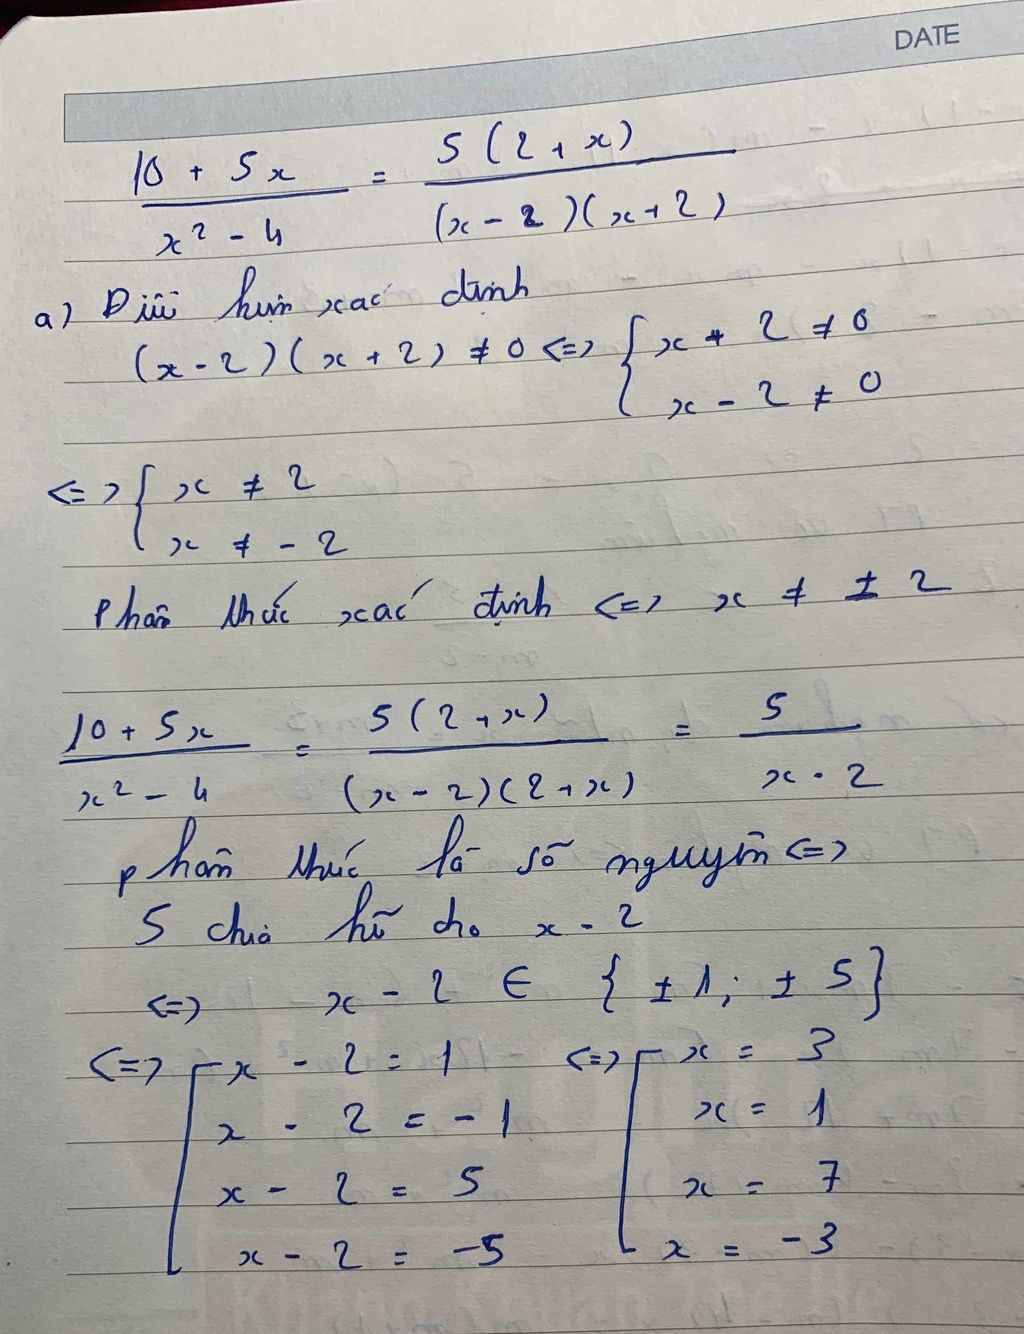 DATE
10 + 5x / x² - 4 = 5 (2 + x) / (x - 2)(x + 2)
a) Điều kiện xác định
(x - 2)(x + 2) ≠ 0 <=> { x + 2 ≠ 0
x - 2 ≠ 0
<=> { x ≠ 2
x ≠ - 2
Phân thức xác định <=> x ≠ ± 2
10 + 5x / x² - 4 = 5 (2 + x) / (x - 2)(2 + x) = 5 / x - 2
phân thức là số nguyên <=>
5 chia hết cho x - 2
<=> x - 2 ∈ { ± 1; ± 5 }
<=> [ x - 2 = 1 <=> [ x = 3
x - 2 = - 1 x = 1
x - 2 = 5 x = 7
x - 2 = -5 x = - 3